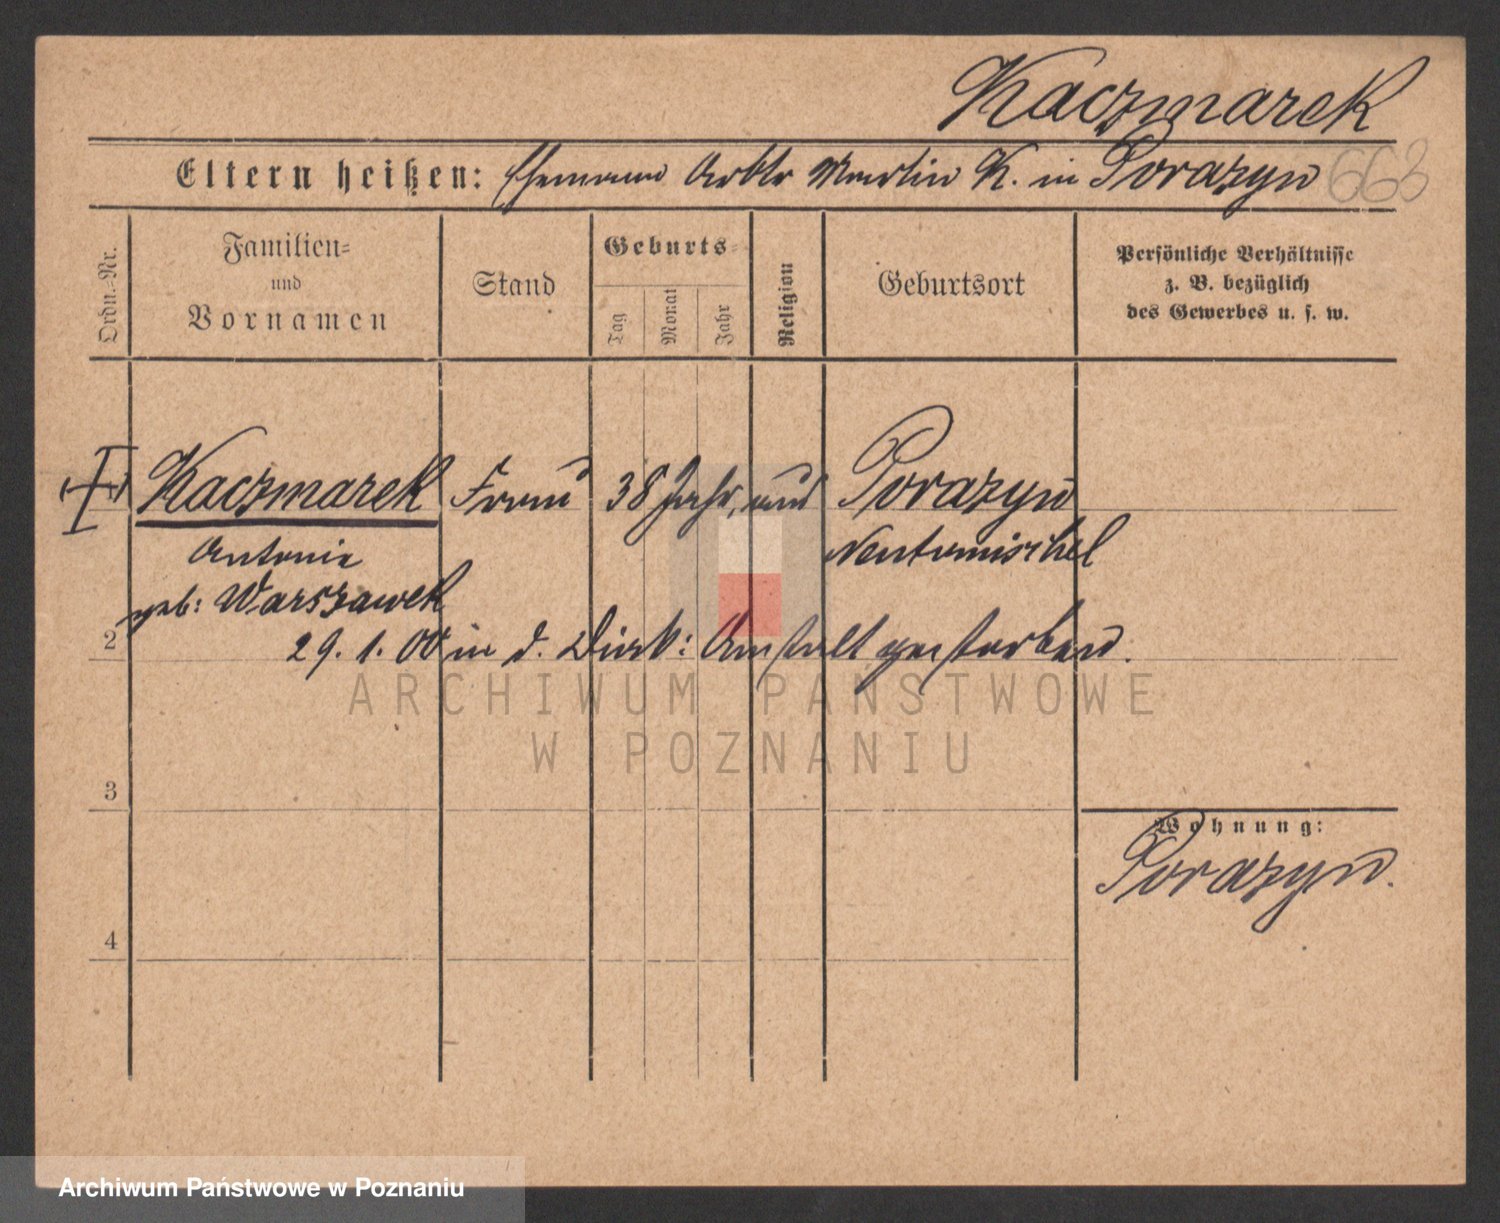 Kaczmarek
Eltern heißen: Ehemann Arbtr Martin K. in Porazyn 663
Ordn.-Nr.
Familien-
und
Vornamen
Stand
Geburts-
Tag
Monat
Jahr
Religion
Geburtsort
Persönliche Verhältnisse
z. B. bezüglich
des Gewerbes u. s. w.
Kaczmarek Frau 38 Jahr, aus Porazyn
Antonie Neutomischel
geb: Warszawek
2
29. 1. 00 in d. Diak: Anstalt gestorben.
ARCHIWUM PAŃSTWOWE
W POZNANIU
3
Wohnung:
Porazyn.
4
Archiwum Państwowe w Poznaniu